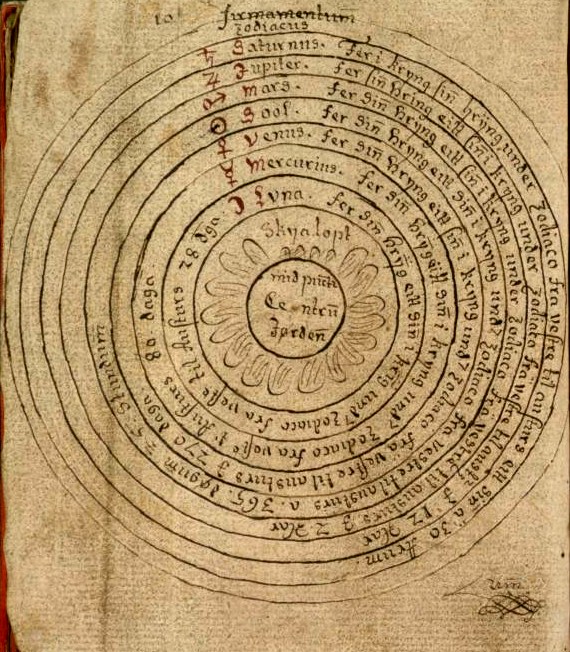 firmamentum
Zodiacus
♄ Saturnus. fer i kryng sin hring under Zodiaco fra vestre til austurs eitt sin a 30 Arum.
♃ Jupiter. fer sin hring eitt sin i kryng under Zodiaco fra vestre til austurs 12 Aar
♂ Mars. fer sin hryng eitt sin i kryng under Zodiaco fra vestre til austurs 2 Aar
☉ Sool. fer sin hryng eitt sin i kryng und Zodiaco fra vestre til austurs a. 365. dogum 5. Stundum
♀ Venus. fer sin hryng eitt sin i kryng und Zodiaco fra vestre til austurs 270 daga
☿ Mercurius. fer sin hryg eitt sin i kryng und Zodiaco fra veste t Austurs 80 daga
☽ Lvna. fer sin hryg eitt sin i kring und Zodiaco fra veste til Austurs 28 dga.
Skyalopt
mid punct
Centru
Jorden